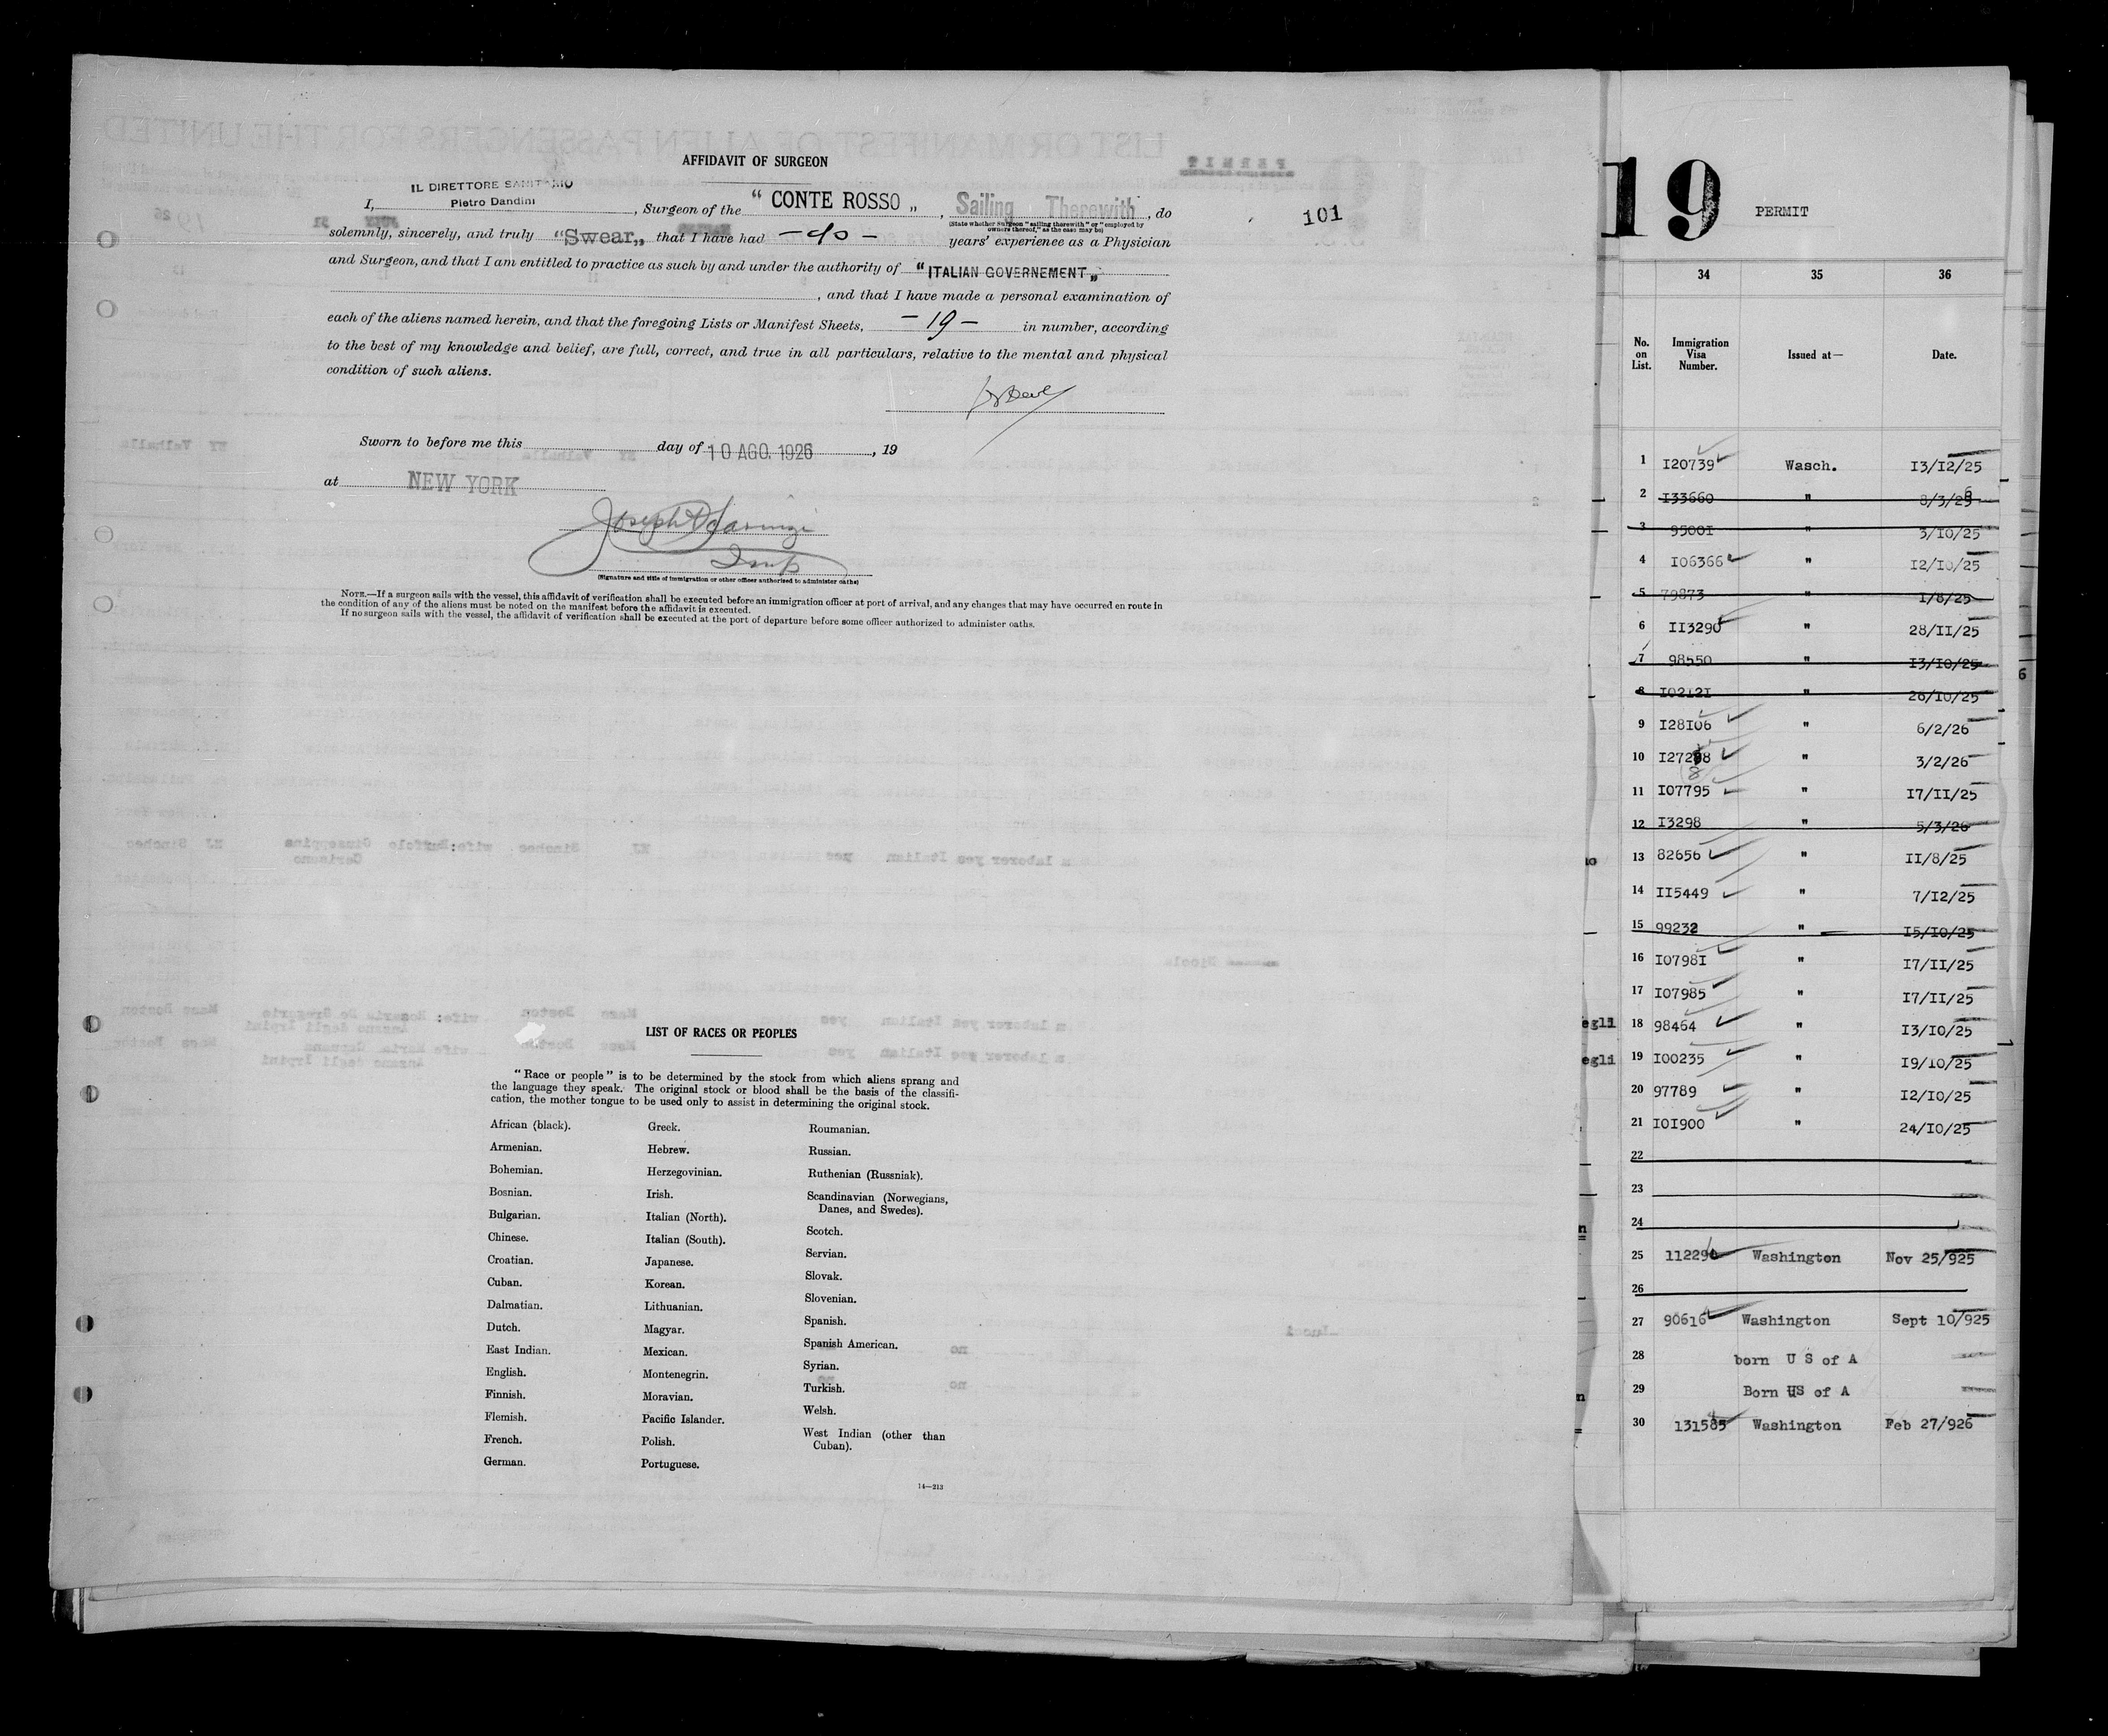 AFFIDAVIT OF SURGEON
IL DIRETTORE SANITARIO
Pietro Dandini
I, , Surgeon of the " CONTE ROSSO „ , Sailing Therewith , do
(State whether Surgeon "sailing therewith" or "employed by
owners thereof," as the case may be)
101
solemnly, sincerely, and truly "Swear„ that I have had years' experience as a Physician
and Surgeon, and that I am entitled to practice as such by and under the authority of "ITALIAN GOVERNEMENT„
, and that I have made a personal examination of
each of the aliens named herein, and that the foregoing Lists or Manifest Sheets, - 19 - in number, according
to the best of my knowledge and belief, are full, correct, and true in all particulars, relative to the mental and physical
condition of such aliens.
Sworn to before me this day of 10 AGO. 1926 , 19
at NEW YORK
Joseph
Insp
(Signature and title of immigration or other officer authorized to administer oaths)
NOTE.—If a surgeon sails with the vessel, this affidavit of verification shall be executed before an immigration officer at port of arrival, and any changes that may have occurred en route in
the condition of any of the aliens must be noted on the manifest before the affidavit is executed.
If no surgeon sails with the vessel, the affidavit of verification shall be executed at the port of departure before some officer authorized to administer oaths.
LIST OF RACES OR PEOPLES
"Race or people" is to be determined by the stock from which aliens sprang and
the language they speak. The original stock or blood shall be the basis of the classifi-
cation, the mother tongue to be used only to assist in determining the original stock.
African (black).
Armenian.
Bohemian.
Bosnian.
Bulgarian.
Chinese.
Croatian.
Cuban.
Dalmatian.
Dutch.
East Indian.
English.
Finnish.
Flemish.
French.
German.
Greek.
Hebrew.
Herzegovinian.
Irish.
Italian (North).
Italian (South).
Japanese.
Korean.
Lithuanian.
Magyar.
Mexican.
Montenegrin.
Moravian.
Pacific Islander.
Polish.
Portuguese.
Roumanian.
Russian.
Ruthenian (Russniak).
Scandinavian (Norwegians,
Danes, and Swedes).
Scotch.
Servian.
Slovak.
Slovenian.
Spanish.
Spanish American.
Syrian.
Turkish.
Welsh.
West Indian (other than
Cuban).
14—213
19 PERMIT
34 35 36
No. on List. Immigration Visa Number. Issued at— Date.
1 I20739 Wasch. I3/I2/25
2 I33660 " 8/3/26
3 9500I " 3/I0/25
4 I06366 " I2/I0/25
5 79873 " I/8/25
6 II3290 " 28/II/25
7 98550 " I3/I0/25
8 I02I2I " 26/I0/25
9 I28I06 " 6/2/26
10 I27298 " 3/2/26
8
11 I07795 " I7/II/25
12 I3298 " 5/3/26
13 82656 " II/8/25
14 II5449 " 7/I2/25
15 99232 " I5/I0/25
16 I0798I " I7/II/25
17 I07985 " I7/II/25
egli 18 98464 " I3/I0/25
egli 19 I00235 " I9/I0/25
20 97789 " I2/I0/25
21 I0I900 " 24/I0/25
22
23
24
25 11229 Washington Nov 25/925
26
27 90616 Washington Sept 10/925
28 born U S of A
29 Born US of A
30 131585 Washington Feb 27/926
6